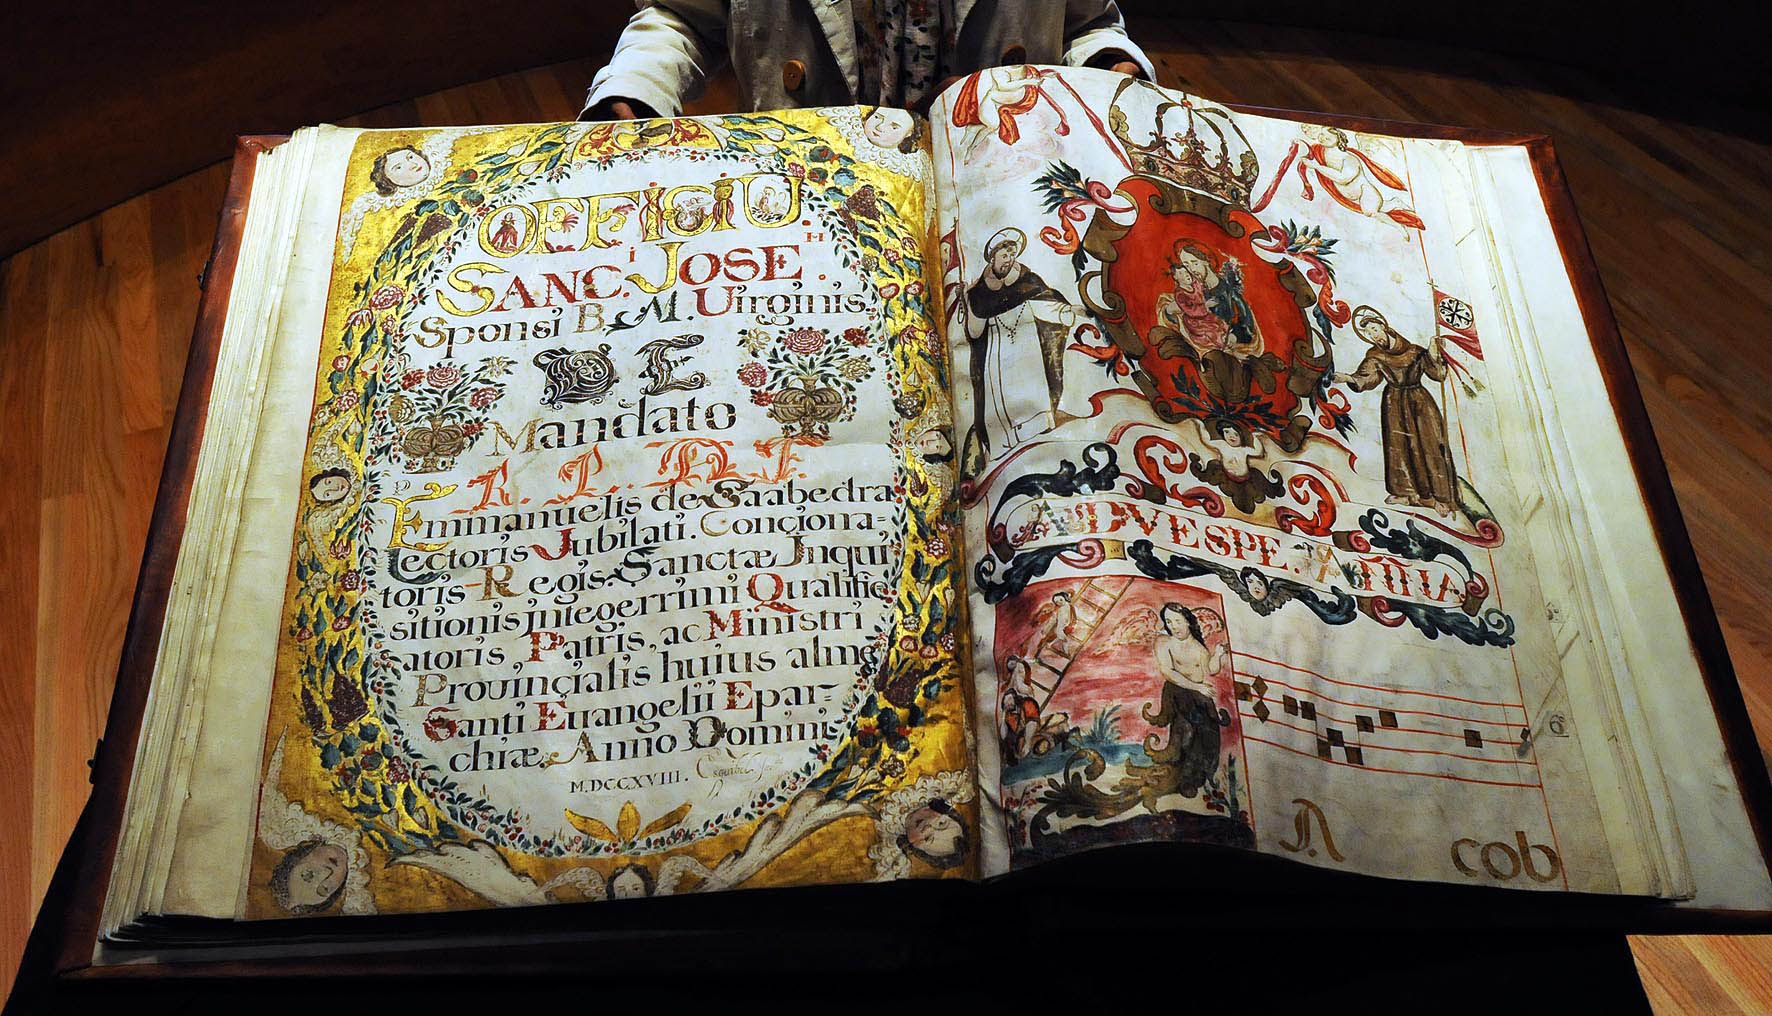 OFFICIU.
SANC.i JOSEH.
Sponsi B. M. Uirginis.
DE
Mandato
R. P. N. F.
Emmanuelis de Saabedra
Lectoris Jubilati. Conçiona=
toris Regis. Sanctæ Jnqui
sitionis jntegerrimi Qualific
atoris, Patris, ac Ministri
Prouinçialis huius alme
Santi Euangelii Epar=
chiæ. Anno Domini,
M.DCCXVIII.
AD VESPE. Añña
6ᵒ
Ja
cob